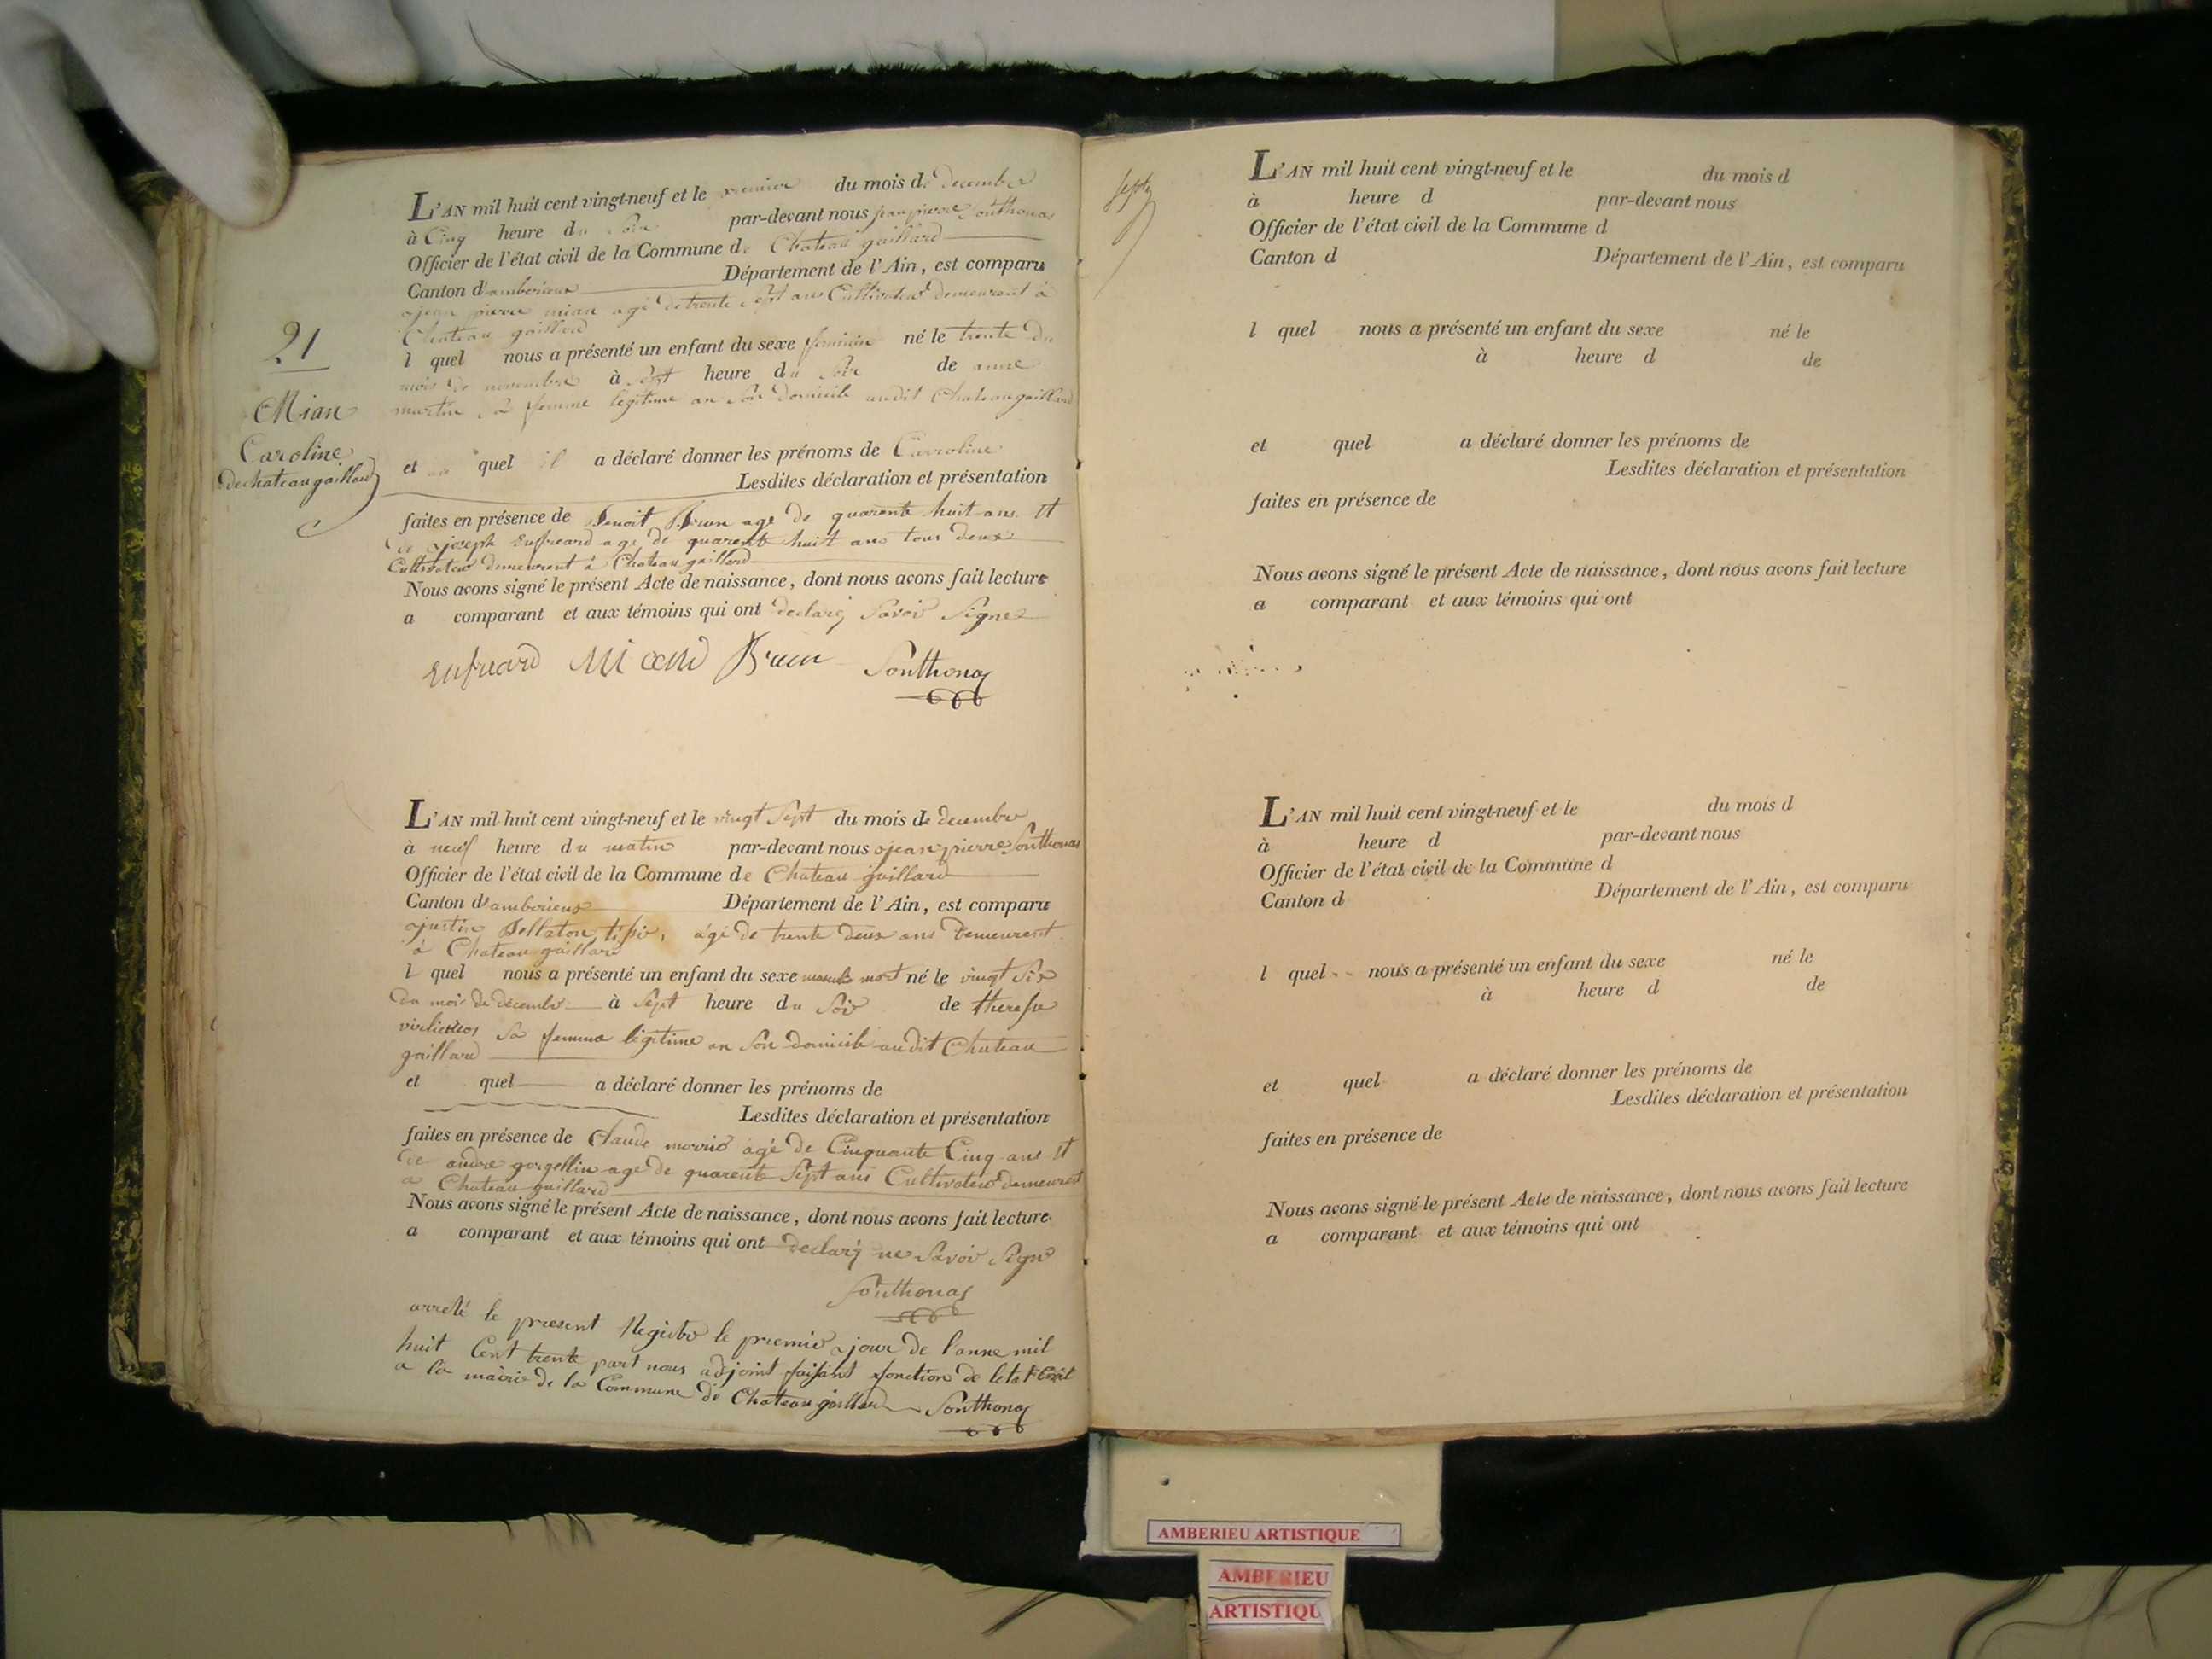 L'AN mil huit cent vingt-neuf et le premier du mois de decembre
à Cinq heure du soir par-devant nous jean pierre Southonas
Officier de l'état civil de la Commune de Chateau gaillard
Canton d'amberieux Département de l'Ain, est comparu
jean pierre mian agé de trente sept ans Cultivateur demeurent à
Chateau gaillard
l quel nous a présenté un enfant du sexe feminin né le trente du
mois de novembre à sept heure du soir de anne
martin sa femme legitime an son domicile audit Chateaugaillard
21
Mian
Caroline
de chateaugaillard
et quel il a déclaré donner les prénoms de Carroline
Lesdites déclaration et présentation
faites en présence de Benoit Brun age de quarente huit ans et
de joseph age de quarente huit ans tous deux
Cultivateur demeurent à Chateau gaillard
Nous avons signé le présent Acte de naissance, dont nous avons fait lecture
a comparant et aux témoins qui ont declarés savoir signer
Brun Southonas
L'AN mil huit cent vingt-neuf et le vingt sept du mois de decembre
à neuf heure du matin par-devant nous jean pierre Southonas
Officier de l'état civil de la Commune de Chateau gaillard
Canton d'amberieux Département de l'Ain, est comparu
justin agé de trente deux ans Demeurent
à Chateau gaillard
l quel nous a présenté un enfant du sexe masculin mort né le vingt six
du mois de decembre à sept heure du soir de theresse
sa femme légitime an son domicile audit Chateau
gaillard
et quel a déclaré donner les prénoms de
Lesdites déclaration et présentation
faites en présence de Claude agé de Cinquante Cinq ans et
de andré age de quarente sept ans Cultivateur demeurent
a Chateau gaillard
Nous avons signé le présent Acte de naissance, dont nous avons fait lecture
a comparant et aux témoins qui ont declarés ne savoir signer
Southonas
arreté le present Registre le premier jour de l'anne mil
huit Cent trente part nous adjoint faisant fonction de letat Civil
a la mairie de la Commune de Chateau gaillard Southonas
L'AN mil huit cent vingt-neuf et le du mois d
à heure d par-devant nous
Officier de l'état civil de la Commune d
Canton d Département de l'Ain, est comparu
l quel nous a présenté un enfant du sexe né le
à heure d de
et quel a déclaré donner les prénoms de
Lesdites déclaration et présentation
faites en présence de
Nous avons signé le présent Acte de naissance, dont nous avons fait lecture
a comparant et aux témoins qui ont
L'AN mil huit cent vingt-neuf et le du mois d
à heure d par-devant nous
Officier de l'état civil de la Commune d
Canton d Département de l'Ain, est comparu
l quel nous a présenté un enfant du sexe né le
à heure d de
et quel a déclaré donner les prénoms de
Lesdites déclaration et présentation
faites en présence de
Nous avons signé le présent Acte de naissance, dont nous avons fait lecture
a comparant et aux témoins qui ont
AMBERIEU ARTISTIQUE
AMBERIEU
ARTISTIQU